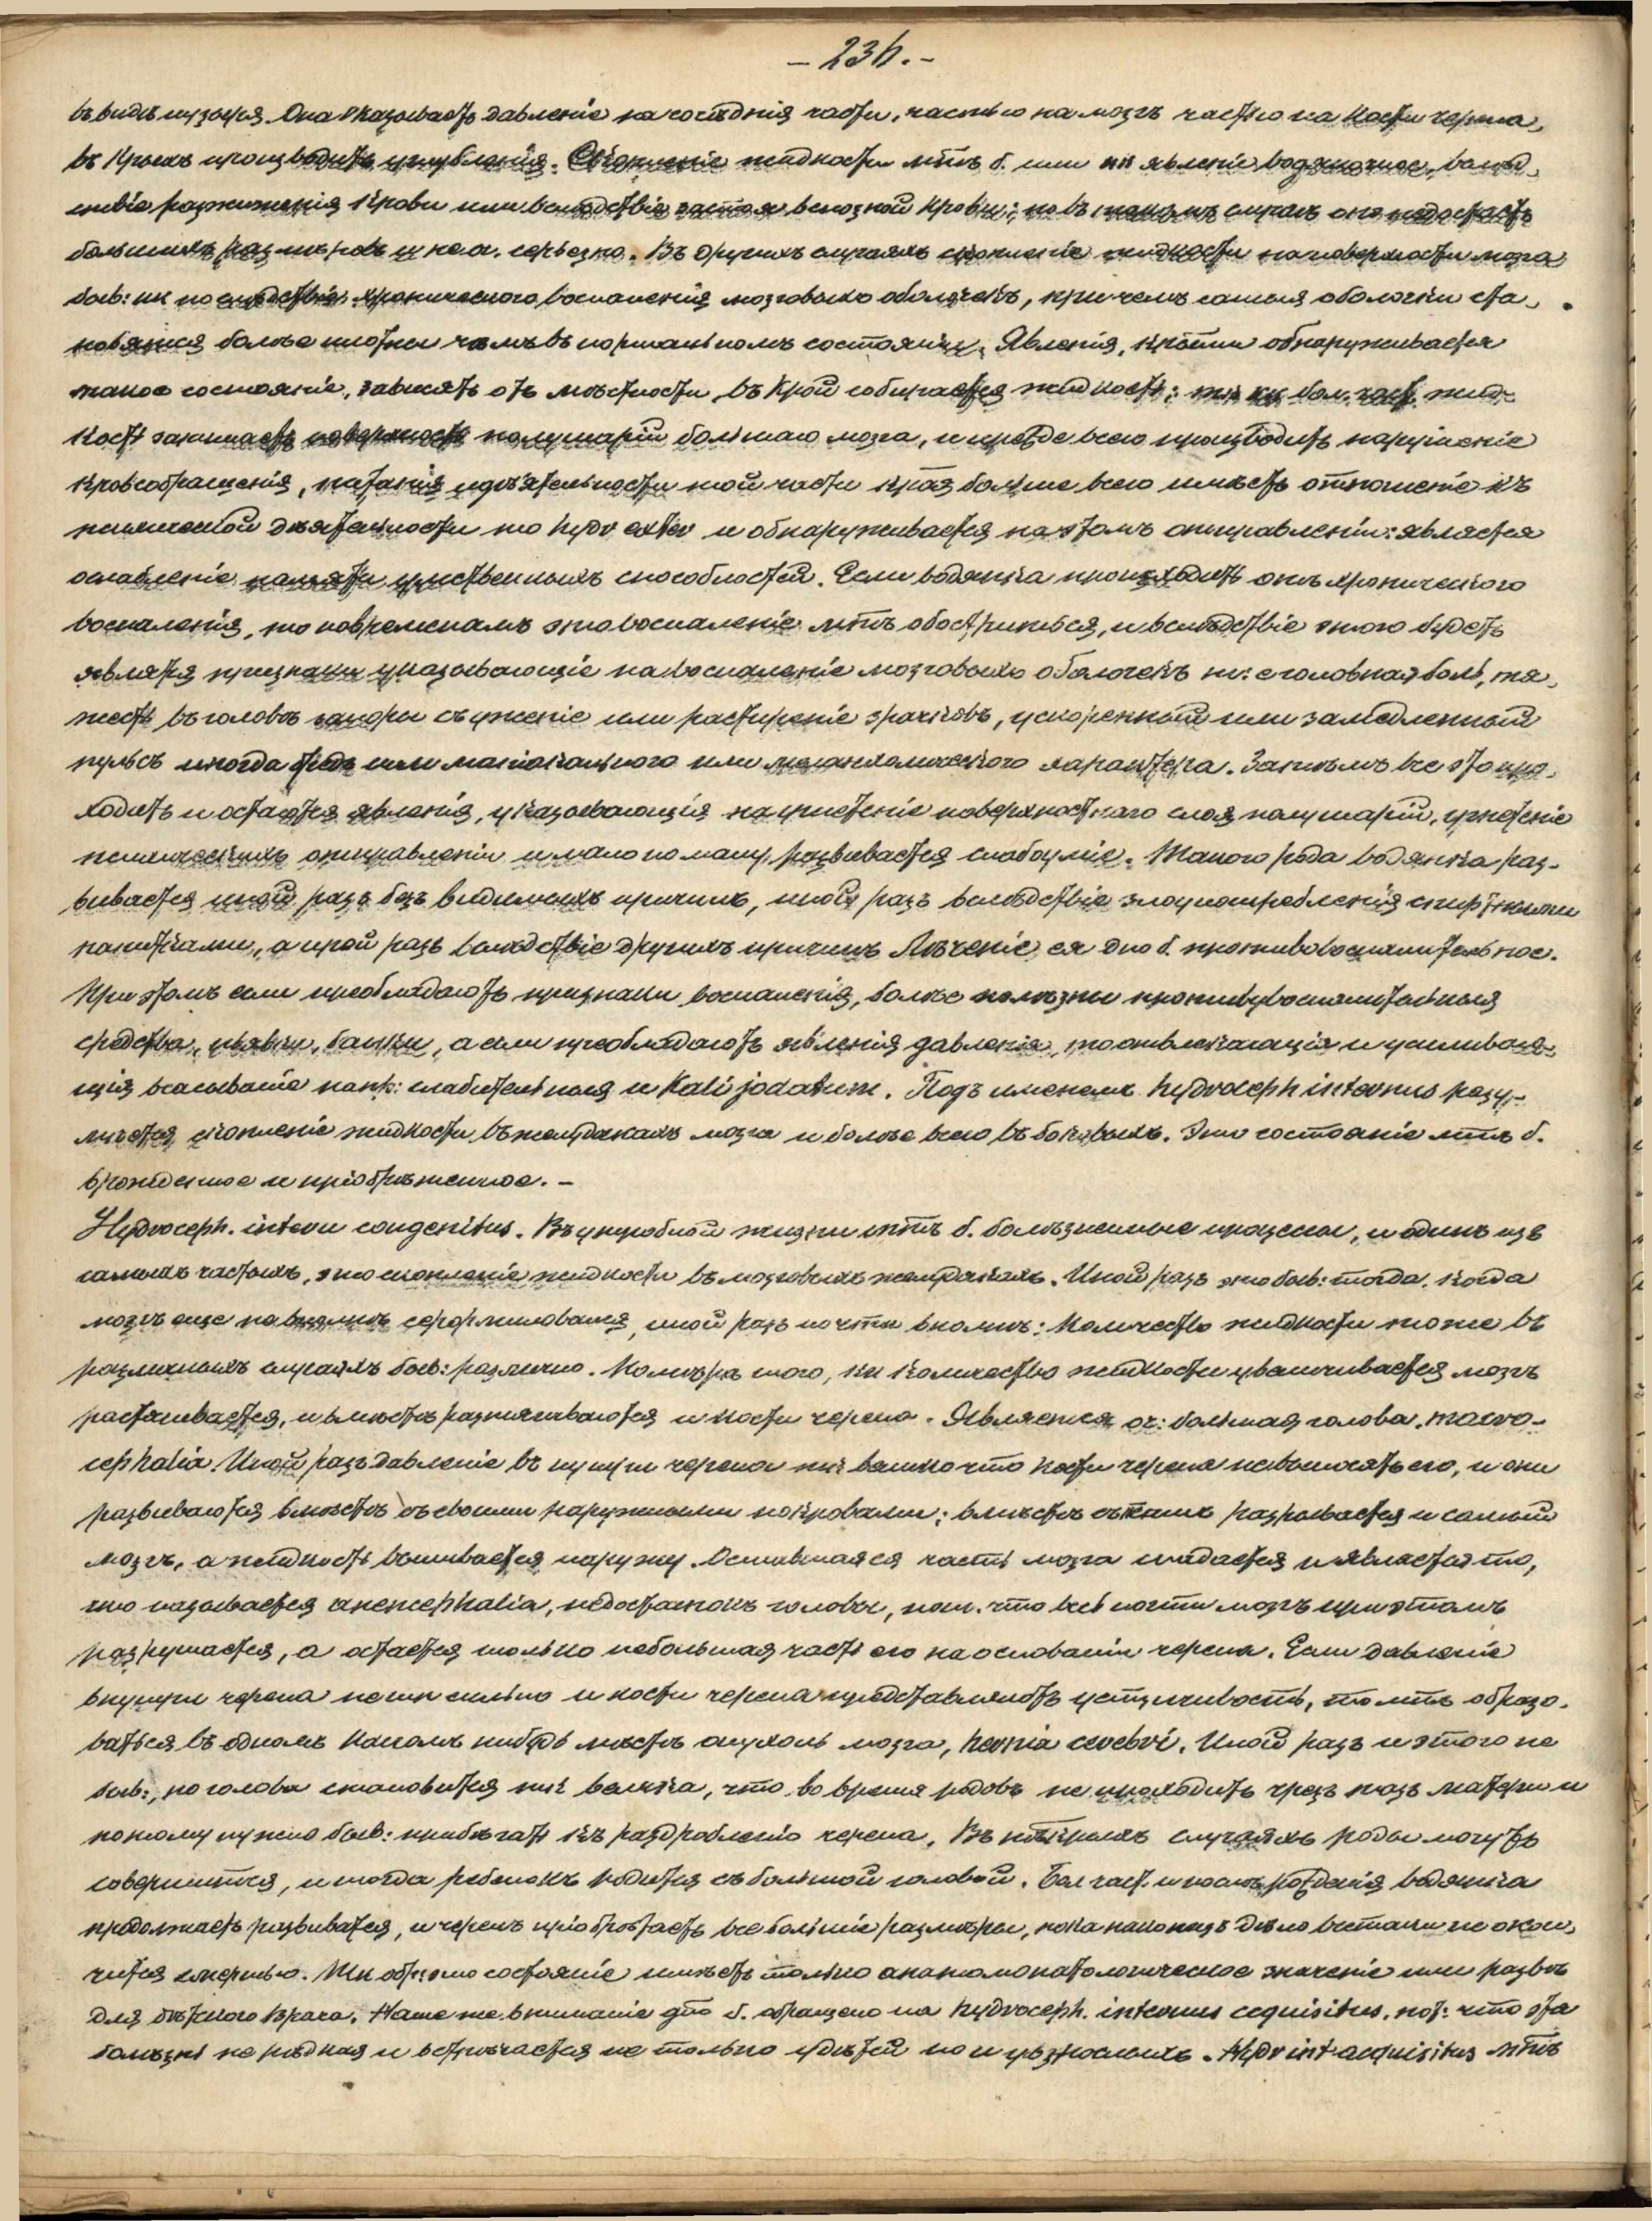 — 236. —
въ видѣ пузыря. Она оказываетъ давленіе на сосѣднія части, частью на мозгъ частью на кости черепа,
въ крыхъ производитъ углубленія. Скопленіе жидкости мтъ б. или явленіе водяночное, вслѣд
ствіе разжиженія крови или вслѣдствіе застоя венозной крови; но въ такомъ случаѣ оно недостаетъ
большихъ размѣровъ и не оч. серьезно. Въ другихъ случаяхъ скопленіе жидкости на поверхности мозга
быв: кк послѣдствіе хроническаго воспаленія мозговыхъ оболочекъ, причемъ самыя оболочки ста-
новятся болѣе плотны чѣмъ въ нормальномъ состояніи. Явленія, крыми обнаруживается
такое состояніе, зависятъ отъ мѣстности, въ крой собирается жидкость; тк кк бол. част. жид-
кость занимаетъ поверхность полушарій большаго мозга, и прежде всего производитъ нарушеніе
кровообращенія, питанія и дѣятельности той части краз больше всего имѣетъ отношеніе къ
психической дѣятельности то hydr exter и обнаруживается на этомъ отправленіи: является
ослабленіе памяти умственныхъ способностей. Если водянка происходитъ отъ хроническаго
воспаленія, то повременамъ это воспаленіе мтъ обостриться, и вслѣдствіе этого будетъ
являтся признаки указывающіе на воспаленіе мозговыхъ оболочекъ т: е головная боль, тя-
жесть въ головѣ запоры съуженіе или расширеніе зрачковъ, ускоренный или замедленный
пульсъ иногда бредъ или маніакальнаго или меланхолическаго характера. Затѣмъ все это про-
ходитъ и остаются явленія, указывающія на угнетеніе поверхностнаго слоя полушарій, угнетеніе
психическихъ отправленій и мало по малу развивается слабоуміе. Такого рода водянка раз-
вивается иной разъ безъ видимыхъ причинъ, иной разъ вслѣдствіе злоупотребленія спиртными
напитками, а иной разъ вслѣдствіе другихъ причинъ Лѣченіе ея дно б. противовоспалительное.
При этомъ если преобладаютъ признаки воспаленія, болѣе полезны противувоспалительныя
средства, піявки, банки, а если преобладаютъ явленія давленія, то отвлекающія и усиливаю-
щія всасываніе напр: слабительныя и Kali jodatum. Подъ именемъ hydroceph internus разу-
мѣется скопленіе жидкости въ желудочкахъ мозга и болѣе всего въ боковыхъ. Это состояніе мтъ б.
врожденное и пріобрѣтенное. —
Hydroceph. intern congenitus. Въ утробной жизни мтъ б. болѣзненные процессы, и одинъ изъ
самыхъ частыхъ, это скопленіе жидкости въ мозговыхъ желудочкахъ. Иной разъ это быв: тогда, когда
мозгъ еще не вполнѣ сформировался, иной разъ почти вполнѣ: Количество жидкости тоже въ
различныхъ случаяхъ быв: различно. По мѣрѣ того, кк количество жидкости увеличивается мозгъ
растягивается, и вмѣстѣ растягиваются и кости черепа. Является оч: большая голова, macro-
cephalia. Иной разъ давленіе въ нутри черепа тк велико что кости черепа не выносятъ его, и они
развиваются вмѣстѣ съ своими наружными покровами; вмѣстѣ съ тѣмъ разрывается и самый
мозгъ, а жидкость выливается наружу. Оставшаяся часть мозга спадается и является то,
что называется anencephalia, недостатокъ головы, пот. что весь почти мозгъ при этомъ
разрушается, а остается только небольшая часть его на основаніи черепа. Если давленіе
внутри черепа не тк сильно и кости черепа представляютъ устойчивость, то мтъ образо-
ваться въ одномъ какомъ нибудь мѣстѣ опухоль мозга, hernia cerebri. Иной разъ и этого не
быв:, но голова становится тк велика, что во время родовъ не проходитъ чрезъ тазъ матери и
потому нужно быв: прибѣгать къ раздробленію черепа. Въ нѣкрыхъ случаяхъ роды могутъ
совершиться, и тогда ребенокъ родится съ большой головой. Бол част. и послѣ рожденія водянка
продолжаетъ развиваться, и черепъ пріобрѣтаетъ все большіе размѣры, пока наконецъ дѣло все таки не окон-
чится смертью. Тк обрзомъ это состояніе имѣетъ только анатомопатологическое значеніе или развѣ
для дѣтскаго врача. Наше же вниманіе дно б. обращено на hydroceph. internus acquisitus, пот: что эта
болѣзнь не рѣдкая и встрѣчается не только у дѣтей но и у взрослыхъ. Hydr int acquisitus мтъ